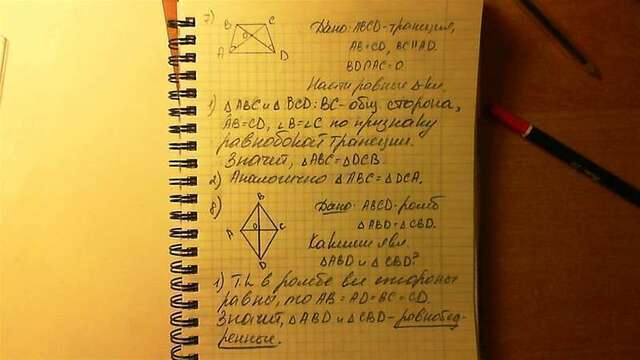 7)
B C
O
A D
Дано: ABCD-трапеция,
AB=CD, BC∥AD.
BD∩AC=O.
Найти равные Δ-ки.
1) ΔABC и ΔBCD: BC-общ. сторона,
AB=CD, ∠B=∠C по признаку
равнобокой трапеции.
Значит, ΔABC=ΔDCB.
2) Аналогично ΔABC=ΔDCA.
8)
B
A O C
D
Дано: ABCD-ромб
ΔABD=ΔCBD.
Какими явл.
ΔABD и ΔCBD?
1) Т.к в ромбе все стороны
равны, то AB=AD=BC=CD.
Значит, ΔABD и ΔCBD-равнобед-
ренные.